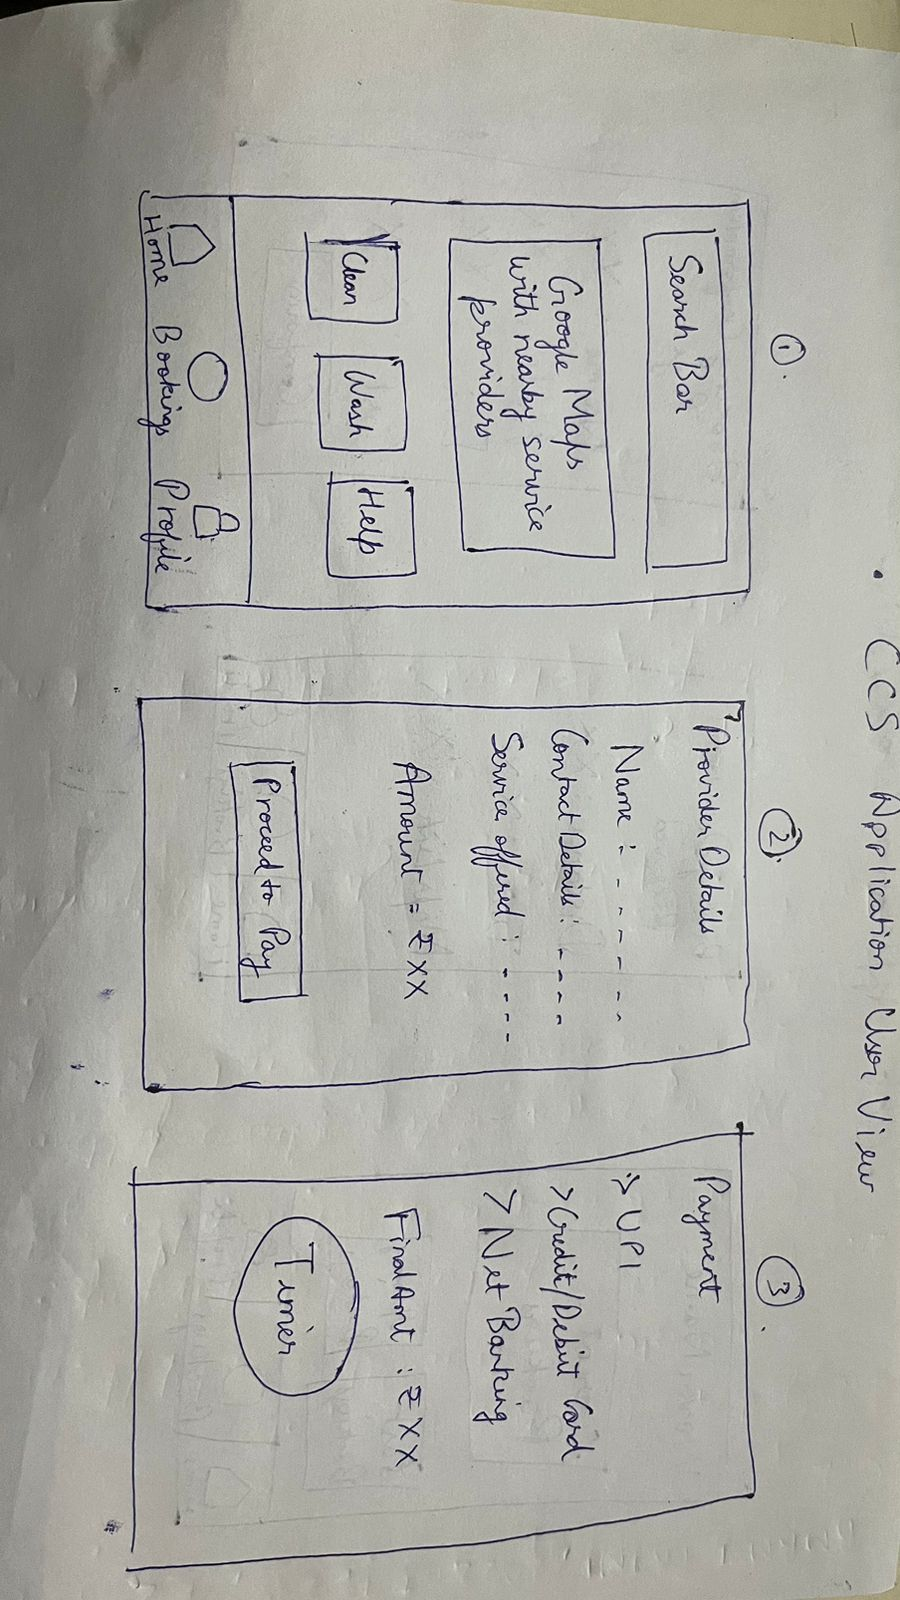 CCS Application User View
①.
Search Bar
Google Maps
with nearby service
providers
Clean
Wash
Help
Home
Bookings
Profile
②.
Provider Details
Name : - - - - - -
Contact Details : - - - -
Service offered : - - - -
Amount = ₹ XX
Proceed to Pay
③.
Payment
> UPI
> Credit/Debit Card
> Net Banking
Final Amt : ₹ XX
Timer